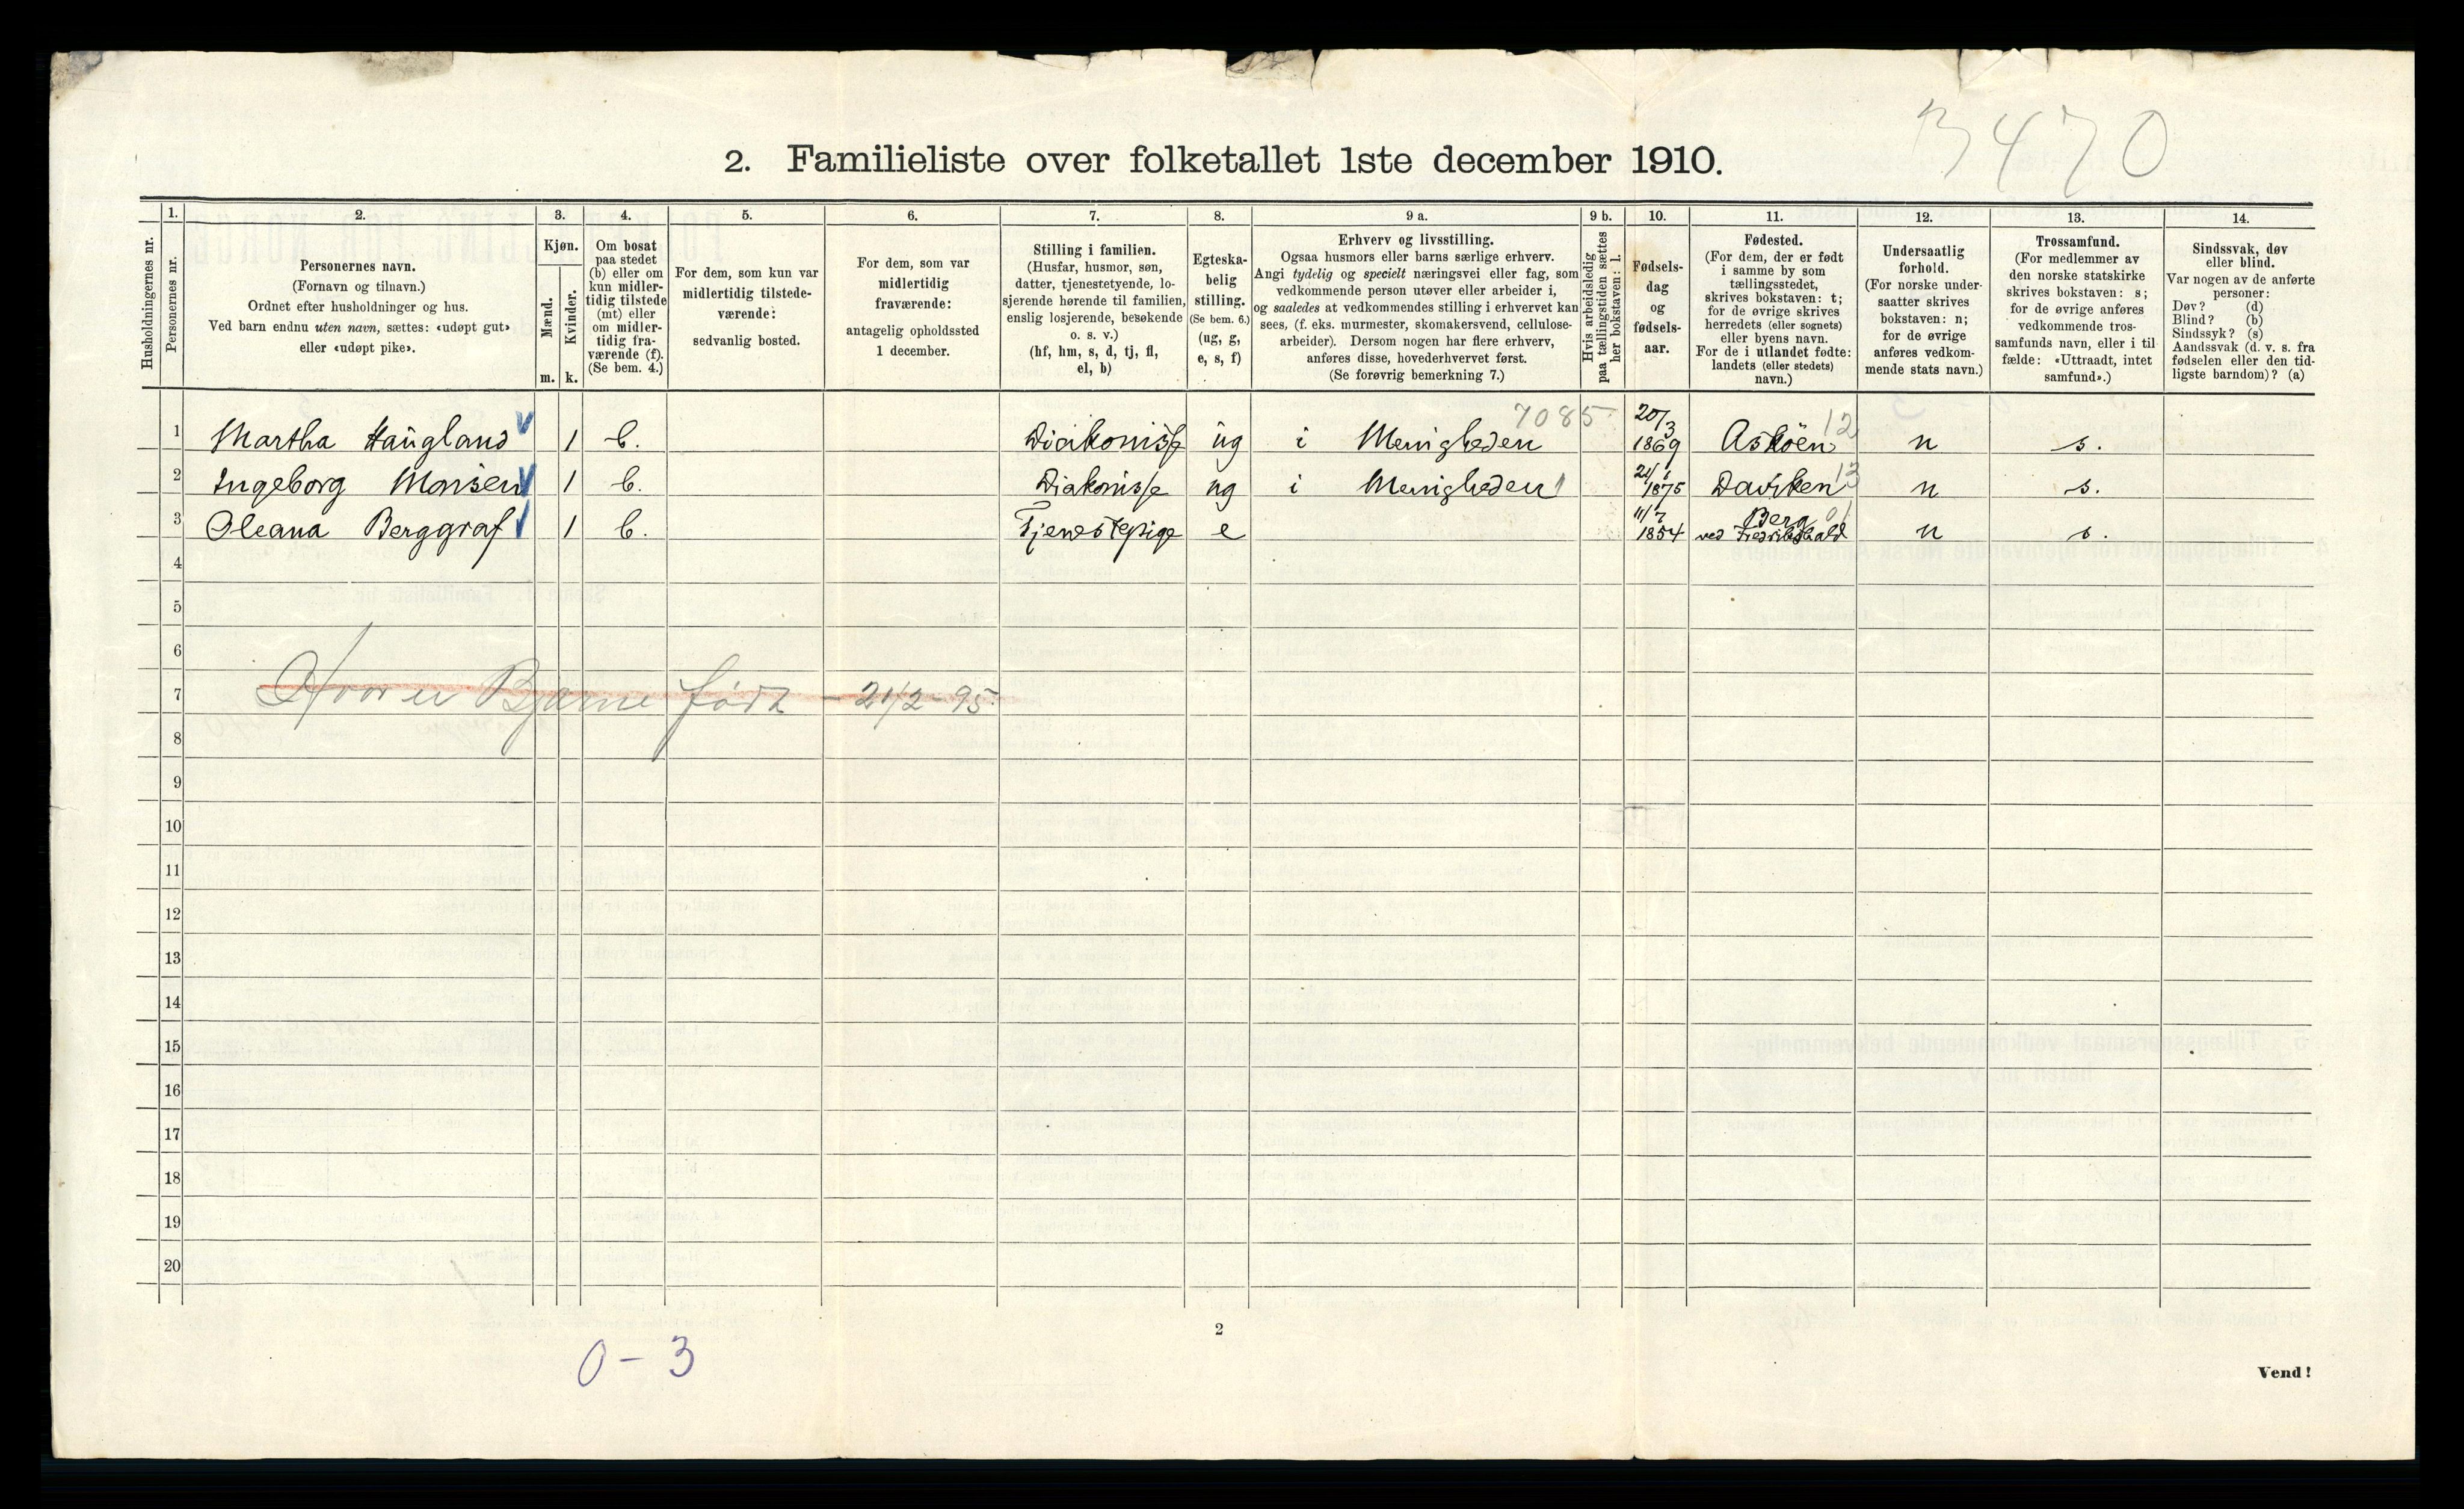 B470
2. Familieliste over folketallet 1ste december 1910.
Husholdningernes nr.
1. Personernes nr.
2. Personernes navn.
(Fornavn og tilnavn.)
Ordnet efter husholdninger og hus.
Ved barn endnu uten navn, sættes: «udøpt gut»
eller «udøpt pike».
3. Kjøn.
Mænd. Kvinder.
m. k.
4. Om bosat
paa stedet
(b) eller om
kun midler-
tidig tilstede
(mt) eller
om midler-
tidig fra-
værende (f).
(Se bem. 4.)
5. For dem, som kun var
midlertidig tilstede-
værende:
sedvanlig bosted.
6. For dem, som var
midlertidig
fraværende:
antagelig opholdssted
1 december.
7. Stilling i familien.
(Husfar, husmor, søn,
datter, tjenestetyende, lo-
sjerende hørende til familien,
enslig losjerende, besøkende
o. s. v.)
(hf, hm, s, d, tj, fl,
el, b)
8. Egteska-
belig
stilling.
(Se bem. 6.)
(ug, g,
e, s, f)
9 a. Erhverv og livsstilling.
Ogsaa husmors eller barns særlige erhverv.
Angi tydelig og specielt næringsvei eller fag, som
vedkommende person utøver eller arbeider i,
og saaledes at vedkommendes stilling i erhvervet kan
sees, (f. eks. murmester, skomakersvend, cellulose-
arbeider). Dersom nogen har flere erhverv,
anføres disse, hovederhvervet først.
(Se forøvrig bemerkning 7.)
9 b. Hvis arbeidsledig
paa tællingstiden sættes
her bokstaven: l.
10. Fødsels-
dag
og
fødsels-
aar.
11. Fødested.
(For dem, der er født
i samme by som
tællingsstedet,
skrives bokstaven: t;
for de øvrige skrives
herredets (eller sognets)
eller byens navn.
For de i utlandet fødte:
landets (eller stedets)
navn.)
12. Undersaatlig
forhold.
(For norske under-
saatter skrives
bokstaven: n;
for de øvrige
anføres vedkom-
mende stats navn.)
13. Trossamfund.
(For medlemmer av
den norske statskirke
skrives bokstaven: s;
for de øvrige anføres
vedkommende tros-
samfunds navn, eller i til-
fælde: «Uttraadt, intet
samfund».)
14. Sindssvak, døv
eller blind.
Var nogen av de anførte
personer:
Døv? (d)
Blind? (b)
Sindssyk? (s)
Aandssvak (d. v. s. fra
fødselen eller den tid-
ligste barndom)? (a)
7085 20/3 12
1 Martha Haugland 1 b. Diakonisse ug i Menigheden 1869 Askøen n s.
2 Ingeborg Monsen 1 b. Diakonisse ug i Menigheden 1875 Daviken 13 n s.
11/7 Berg 01
3 Oleana Berggraf 1 b. Tjenestepige e 1854 ved Fredrikshald n s.
4
5
6
7 Hvor er Bjarne født - 21/2-95.
8
9
10
11
12
13
14
15
16
17
18
19
20
2
0-3
Vend!